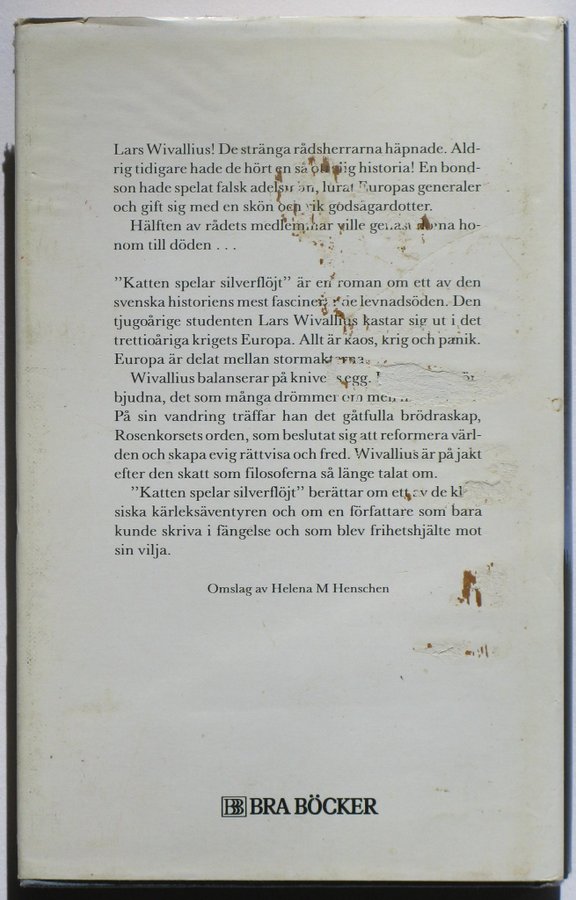 Lars Wivallius! De stränga rådsherrarna häpnade. Ald-
rig tidigare hade de hört en så otrolig historia! En bond-
son hade spelat falsk adelsman, lurat Europas generaler
och gift sig med en skön och rik godsägardotter.
Hälften av rådets medlemmar ville genast döma ho-
nom till döden . . .
”Katten spelar silverflöjt” är en roman om ett av den
svenska historiens mest fascinerande levnadsöden. Den
tjugoårige studenten Lars Wivallius kastar sig ut i det
trettioåriga krigets Europa. Allt är kaos, krig och panik.
Europa är delat mellan stormakterna.
Wivallius balanserar på knivens egg.
bjudna, det som många drömmer om men
På sin vandring träffar han det gåtfulla brödraskap,
Rosenkorsets orden, som beslutat sig att reformera värl-
den och skapa evig rättvisa och fred. Wivallius är på jakt
efter den skatt som filosoferna så länge talat om.
”Katten spelar silverflöjt” berättar om ett av de klas-
siska kärleksäventyren och om en författare som bara
kunde skriva i fängelse och som blev frihetshjälte mot
sin vilja.
Omslag av Helena M Henschen
BB BRA BÖCKER